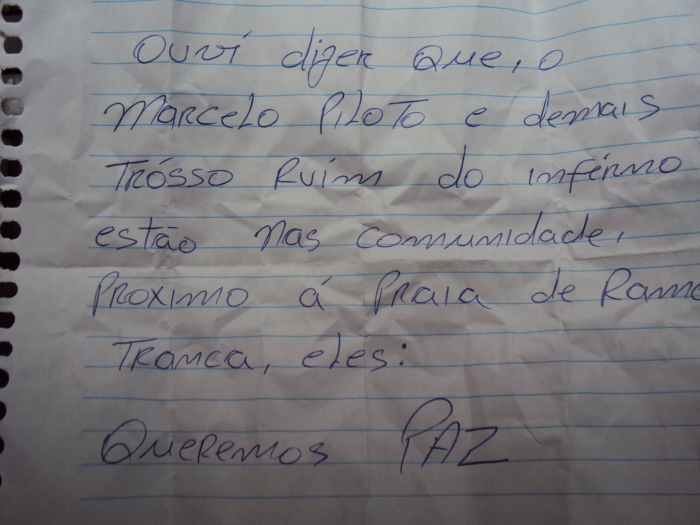 Ouví dizer que, o
Marcelo Piloto e demais
Trósso Ruim do inférno
estão nas comunidade,
Proximo á Praia de Ramo
Tranca, eles:
Queremos PAZ